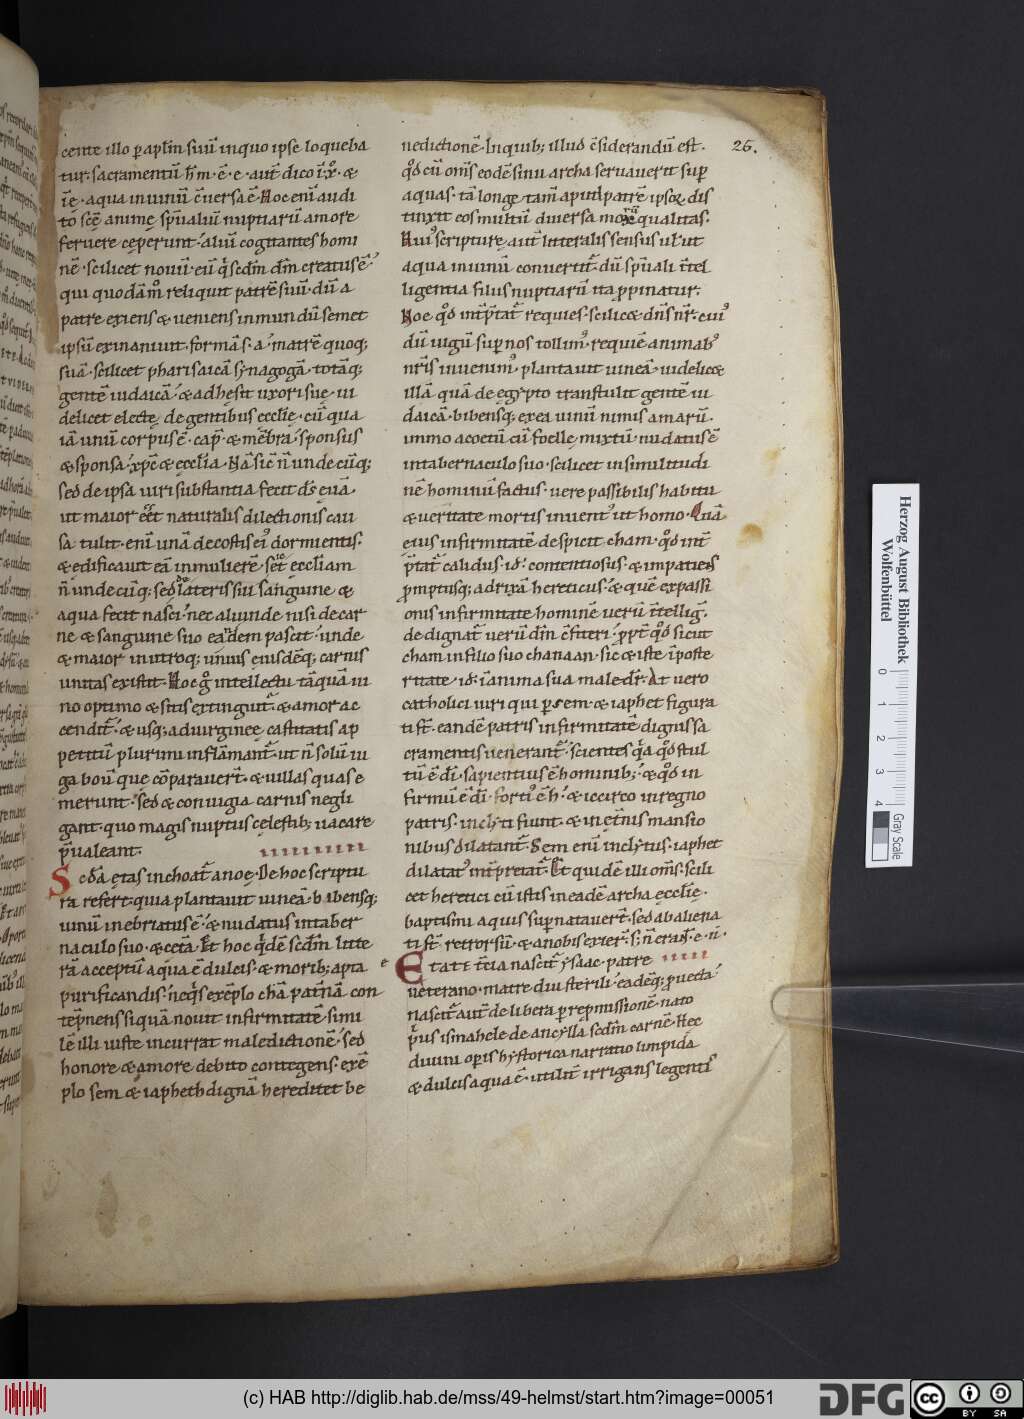 cente illo ꝑ apl̄m suū inquo ipse loqueba
tur. sacramentū h̄ m̄. ē. e. aut̄ dico ī x̊. ⁊
īę. aqua inuinū c̄uersa ē. Hoc eni audi
to scē anime sp̄ualiū nuptiarū amore
feruere ceperunt. aliū cogitantes homi
nē. scilicet nouū. eū q̇ scdm̄ dm̄ creatus ē.
qui quodāmͦ reliquit patrē suū. dū a
patre exiens ⁊ ueniens in mundū semet
ipsū exinaniuit. formā s. a. matrē quoq;
suā. scilicet pharisaicā synagogā. totāq;
gentē iudaicā. ⁊ adhesit uxori sue. ui
delicet electe de gentibus eccl̄ie. cū qua
iā unū corpus ē. cap̄. ⁊ mēbra. sponsus
⁊ sponsa. xp̄c ⁊ eccl̄ia. Nā sic n̄ unde cūq;
sed de ipsa uiri substantia fecit ds̄ euā.
ut maior eēt naturalis dilectionis cau
sa. tulit. eni unā de costis ei᷒ dormientis.
⁊ edificauit eā in mulierē. set᷒ eccl̄iam
n̄ unde cūq; sed lateris sui sanguine ⁊
aqua fecit nasci. nec aliunde nisi de car
ne ⁊ sanguine suo eadem pascit. unde
⁊ maior in utroq; unius eiusdēq; carnis
unitas existit. Hoc gͦ intellectu tāquā ui
no optimo ⁊ sitis extinguit᷒. ⁊ amor ac
cendit᷒. ⁊ usq; ad uirginee castitatis ap
petitū plurimi inflāmant᷒. ut n̄ solū iu
ga boū que cōparauer̄t. ⁊ uillas quas e
merunt. sed ⁊ coniugia carnis negli
gant. quo magis nuptus celestib; uacare
p̄ualeant.
Scd̄a ętas inchoat᷒ a noe. De hoc scriptu
ra refert. quia plantauit uineā. bibensq;
uinū inebriatus ē. ⁊ nudatus in taber
naculo suo. ⁊ cetā. Et hoc q̇dē scdm̄ litte
rā acceptū aqua ē dulcis. ⁊ morib; apta
purificandis. neq̇s exēplo chā patnā con
tēp̄nens si quā nouit infirmitatē. simi
lē illi iuste incurrat maledictionē. sed
honore ⁊ amore debito contegens. exē
plo sem ⁊ iapheth dignā hereditet be
nedictionē. Inquib; illud c̄siderandū est.
qͦd cū om̄s eodē sinu archa seruauerit sup̄
aquas. tā longe tam̄ apud patrē ipsoꝝ dis
tinxit eos multū diuersa morū qualitas.
Hui᷒ scripture aut̄ litteralis sensus uł ut
aqua in uinū conuertit᷒. dū sp̄uali ītel
ligentia filiis nuptiarū ita ꝓpinatur.
Noe qͦd int̄p̄tat᷒ requies. scilicꝫ dn̄s nr̄. cui᷒
dū iugū sup nos tollim᷒. requiē animab᷒
nr̄is inuenim᷒. plantauit uineā. uidelicꝫ
illā quā de egypto transtulit gentē iu
daicā. bibensq; ex ea uinū nimis amarū.
immo acetū cū felle mixtū. nudatus ē
in tabernaculo suo. scilicet in similitudi
nē hominū factus. uere passibilis habitu
⁊ ueritate mortis inuent᷒ ut homo. Quā
eius infirmitatē despicit cham. qͦd int̄
p̄tat᷒ calidus. id. contentiosus. ⁊ impatiens
ꝓmptusq; ad rixā hereticus. ⁊ quē expassi
onis infirmitate hominē uerū ītellig̅.
dedignat᷒ uerū dm̄ c̄fiteri. ꝓpt̄ qͦd sicut
cham in filio suo chanaan. sic ⁊ iste ī poste
ritate. id. ī anima sua male dr̄. At uero
catholici uiri qui ꝑ sem ⁊ iaphet figura
ti st̄. eandē patris infirmitatē dignissa
cramentis uenerant᷒. scientes qa qͦd stul
tū ē dī. sapientius ē hominib;. ⁊ qͦd in
firmū ē dī. forti᷒ ē h̄. ⁊ iccirco in regno
patris. inclyti fiunt. ⁊ in et̄nis mansio
nibus dilatant᷒. Sem eni inclytus. iaphet
dilatat᷒ int̄pretat᷒. Et quidē illi om̄s. scili
cet heretici cū istis in eadē archa ecclie.
baptismi aquis supnatauer̄t. sed ab aliena
ti st̄ retrorsū. ⁊ a nobis exier̄. s; n̄ eran̄. e. n̄.
Etate t̄cia nascit᷒ ysaac. patre
ueterano. matre diu sterili. eadēq; ꝓuecta.
nascit᷒ aut̄ de libera ꝑ repmissionē. nato
p̄us ismahele de ancylla scdm̄ carnē. Hec
diuini opis hystorica narratio limpida
⁊ dulcis aqua ē. utilit̄ irrigans legenti᷒
26.
Herzog August Bibliothek
Wolfenbüttel
0 1 2 3 4
Gray Scale
(c) HAB http://diglib.hab.de/mss/49-helmst/start.htm?image=00051
DFG
cc BY SA